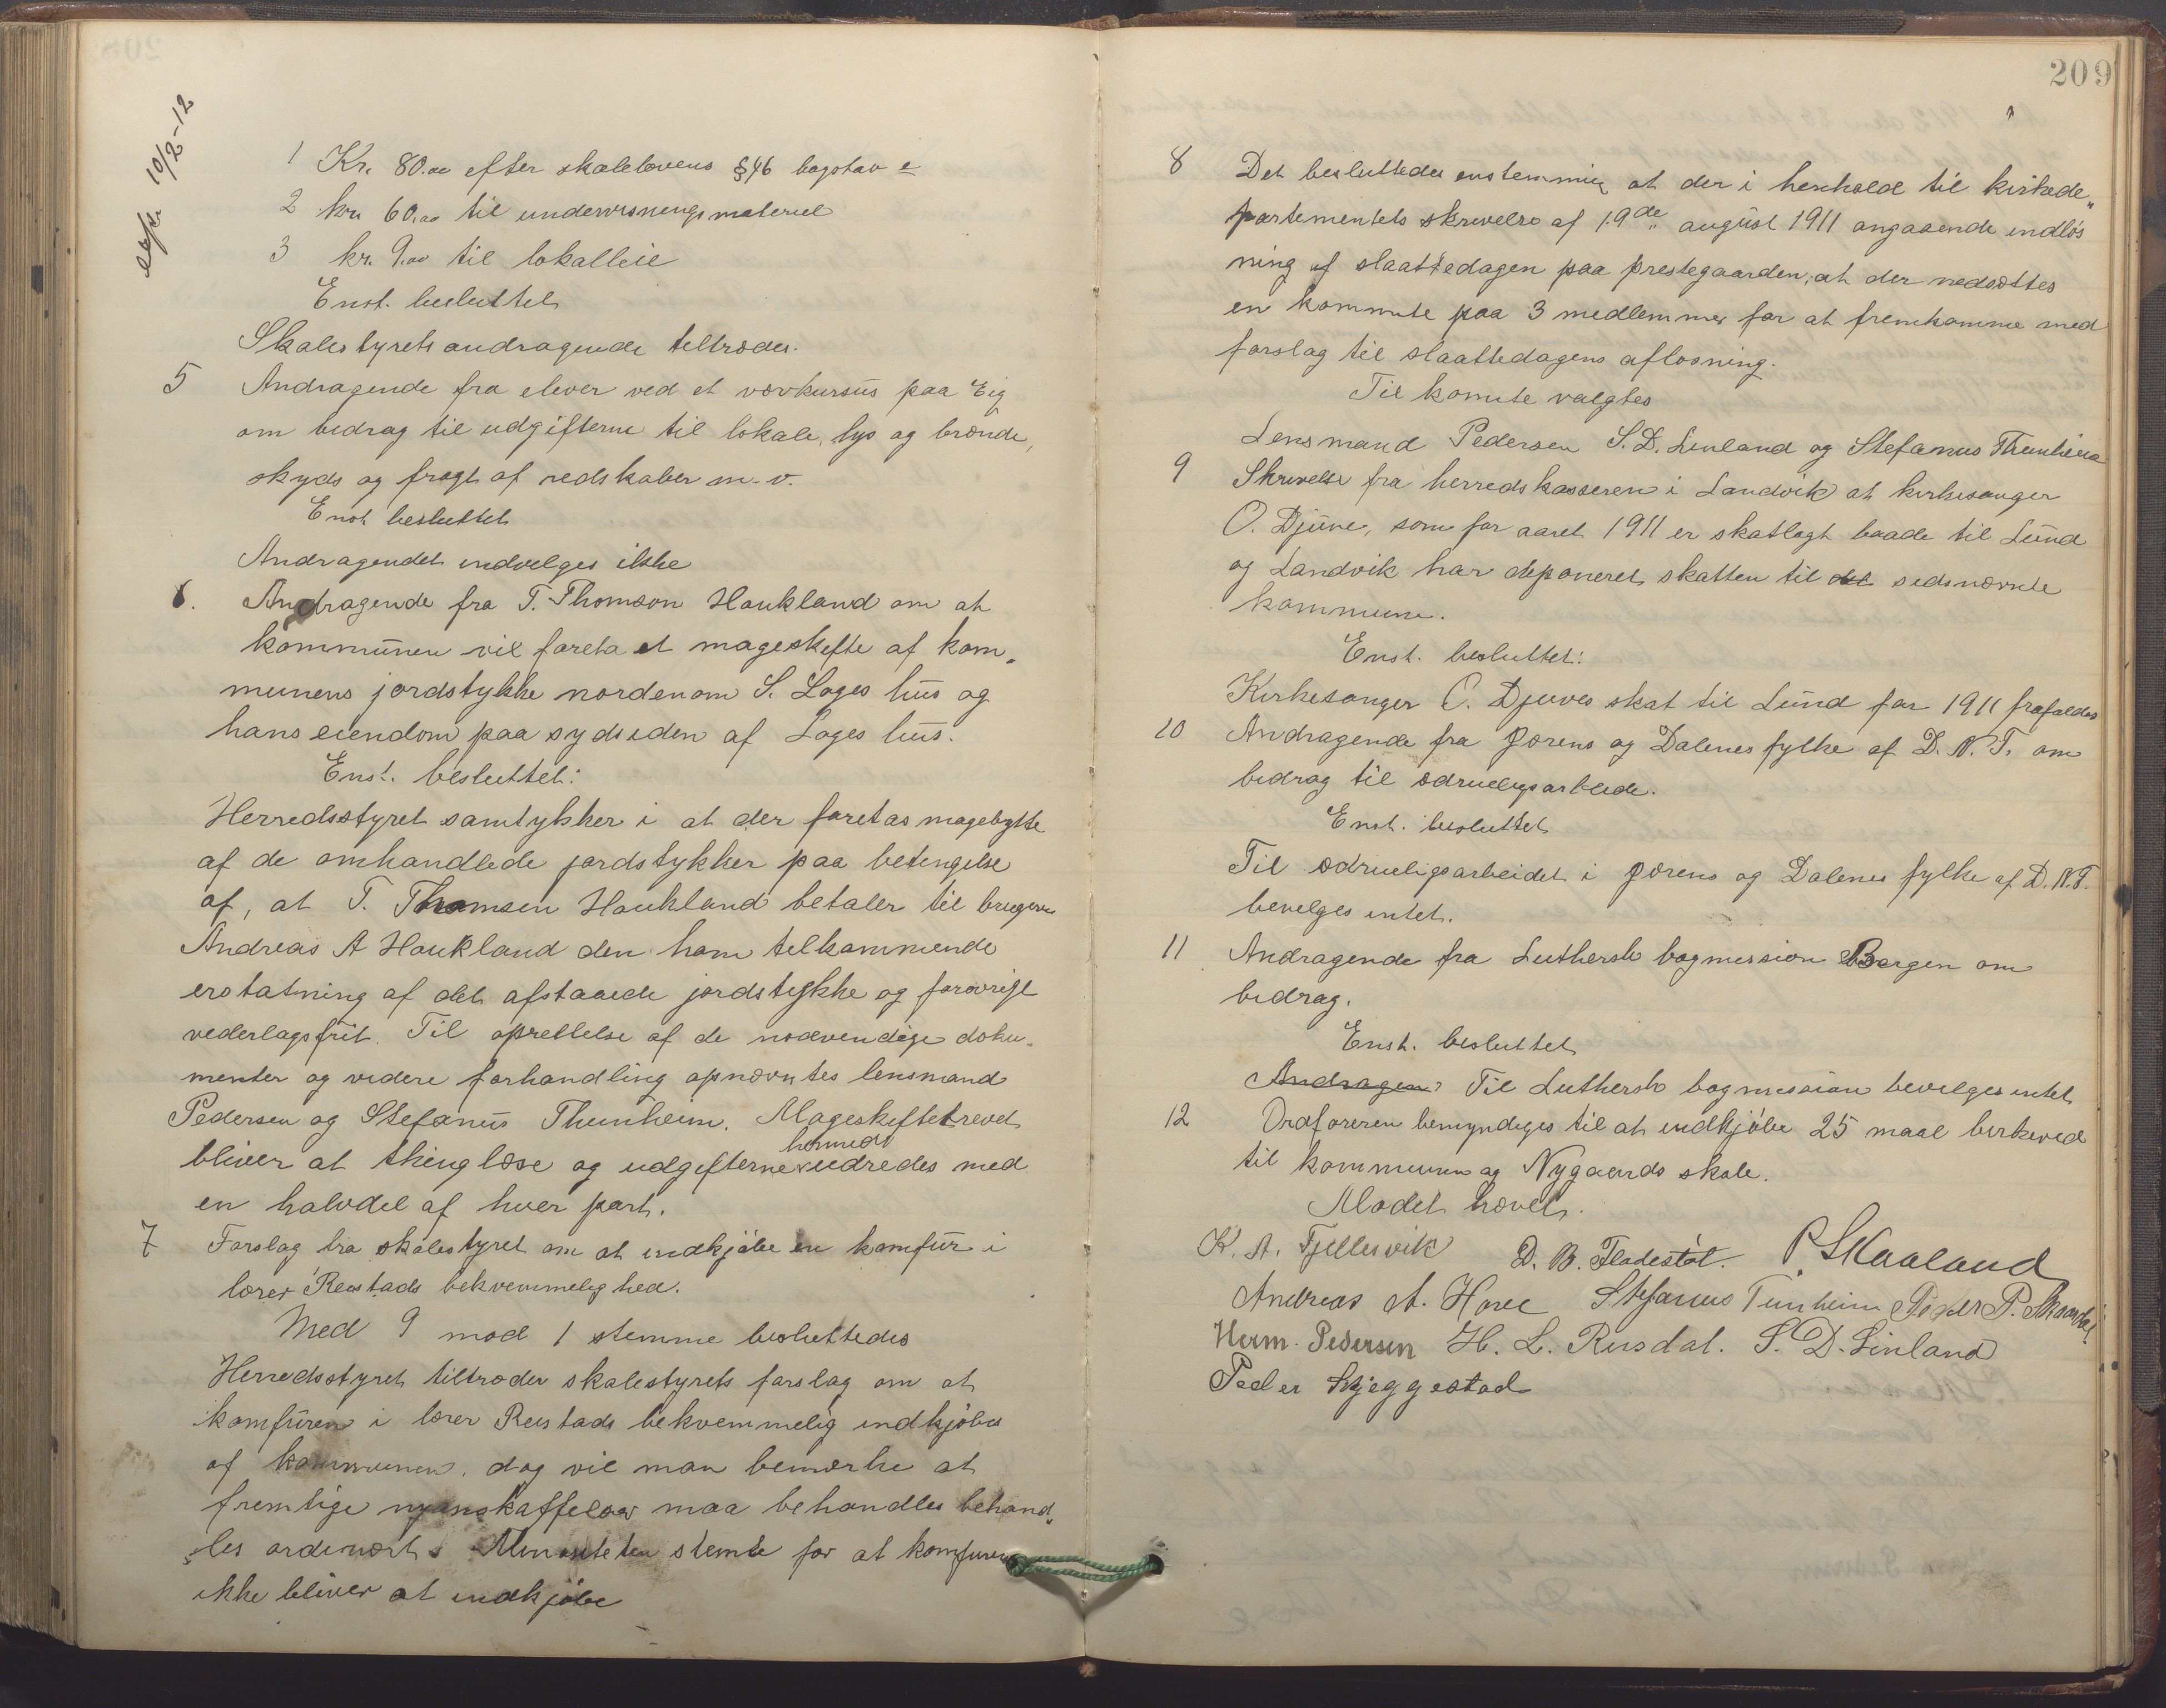 10/2-12
1 Kr. 80.00 efter skolelovens § 46 bogstav e
2 kr. 60.00 til undervisningsmateriel
3 kr. 9.00 til lokalleie
Enst. besluttet
Skolestyrets andragende tiltrædes.
5 Andragende fra elever ved et vævkursus paa Eig
om bidrag til udgifterne til lokale, lys og brænde,
skyds og fragt af redskaber m.v.
Enst besluttet
Andragendet indvelges ikke
6. Andragende fra T. Thomson Haukland om at
kommunen vil foreta et mageskefte af kom„
munens jordstykke nordenom S. Loges hus og
hans eiendom paa sydsiden af Loges hus.
Enst. besluttet:
Herredsstyret samtykker i at der foretas magebytte
af de omhandlede jordstykker paa betingelse
af, at T. Thomsen Haukland betaler til brugeren
Andreas A Haukland den ham tilkommende
erstatning af det afstaaede jordstykke og forøvrigt
vederlagsfrit. Til oprettelse af de nødvendige doku„
menter og videre forhandling opnævntes lensmand
Pedersen og Stefanus Thunheim. Mageskeftebrevet
hermed
bliver at thinglæse og udgifterne udredes med
en halvdel af hver part.
7 Forslag fra skolestyret om at indkjøbe en komfur i
lærer Reistads bekvemmelighed.
Med 9 mod 1 stemme besluttedes
Herredsstyret tiltræder skolestyrets forslag om at
komfuren i lærer Reistads bekvemmelig indkjøbes
af kommunen. dog vil man bemærke at
fremtige nyanskaffelser maa behandles behand„
les ordinært. Minoriteten stemte for at komfuren
ikke bliver at indkjøbe
209
8 Det besluttedes enstemmig at der i henhold til kirkede„
partementets skrivelse af 19de august 1911 angaaende indløs
ning af slaattedagen paa prestegaarden, at der nedsættes
en kommite paa 3 medlemmer for at fremkomme med
forslag til slaattedagens afløsning.
Til komite valgtes
Lensmand Pedersen S. D. Linland og Stefanus Thunheim
9 Skrivelse fra herredskasseren i Landvik at kirkesanger
O. Djuve, som for aaret 1911 er skatlagt baade til Lund
og Landvik har deponeret skatten til det sidsnævnte
kommune.
Enst. besluttet:
Kirkesanger O. Djuves skat til Lund for 1911 frafaldes
10 Andragende fra Jærens og Dalenes fylke af D. N. T. om
bidrag til ædrueligsarbeide.
Enst. besluttet
Til ædrueligsarbeidet i Jærens og Dalenes fylke af D. N. T.
bevelges intet.
11 Andragende fra Luthersk bogmission Bergen om
bidrag.
Enst. besluttet
Andragen Til Luthersk bogmission bevelges intet
12 Ordføreren bemyndiges til at indkjøbe 25 maal birkeved
til kommunen og Nygaards skole.
Mødet hævet.
K. A. Fjellesvik D. B. Fladestøl. P. Skaaland
Andreas A. Hove Stefanus Tunheim Peder P.
Herm. Pedersen H. L. Rusdal. S. D. Linland
Peder Skjeggestad